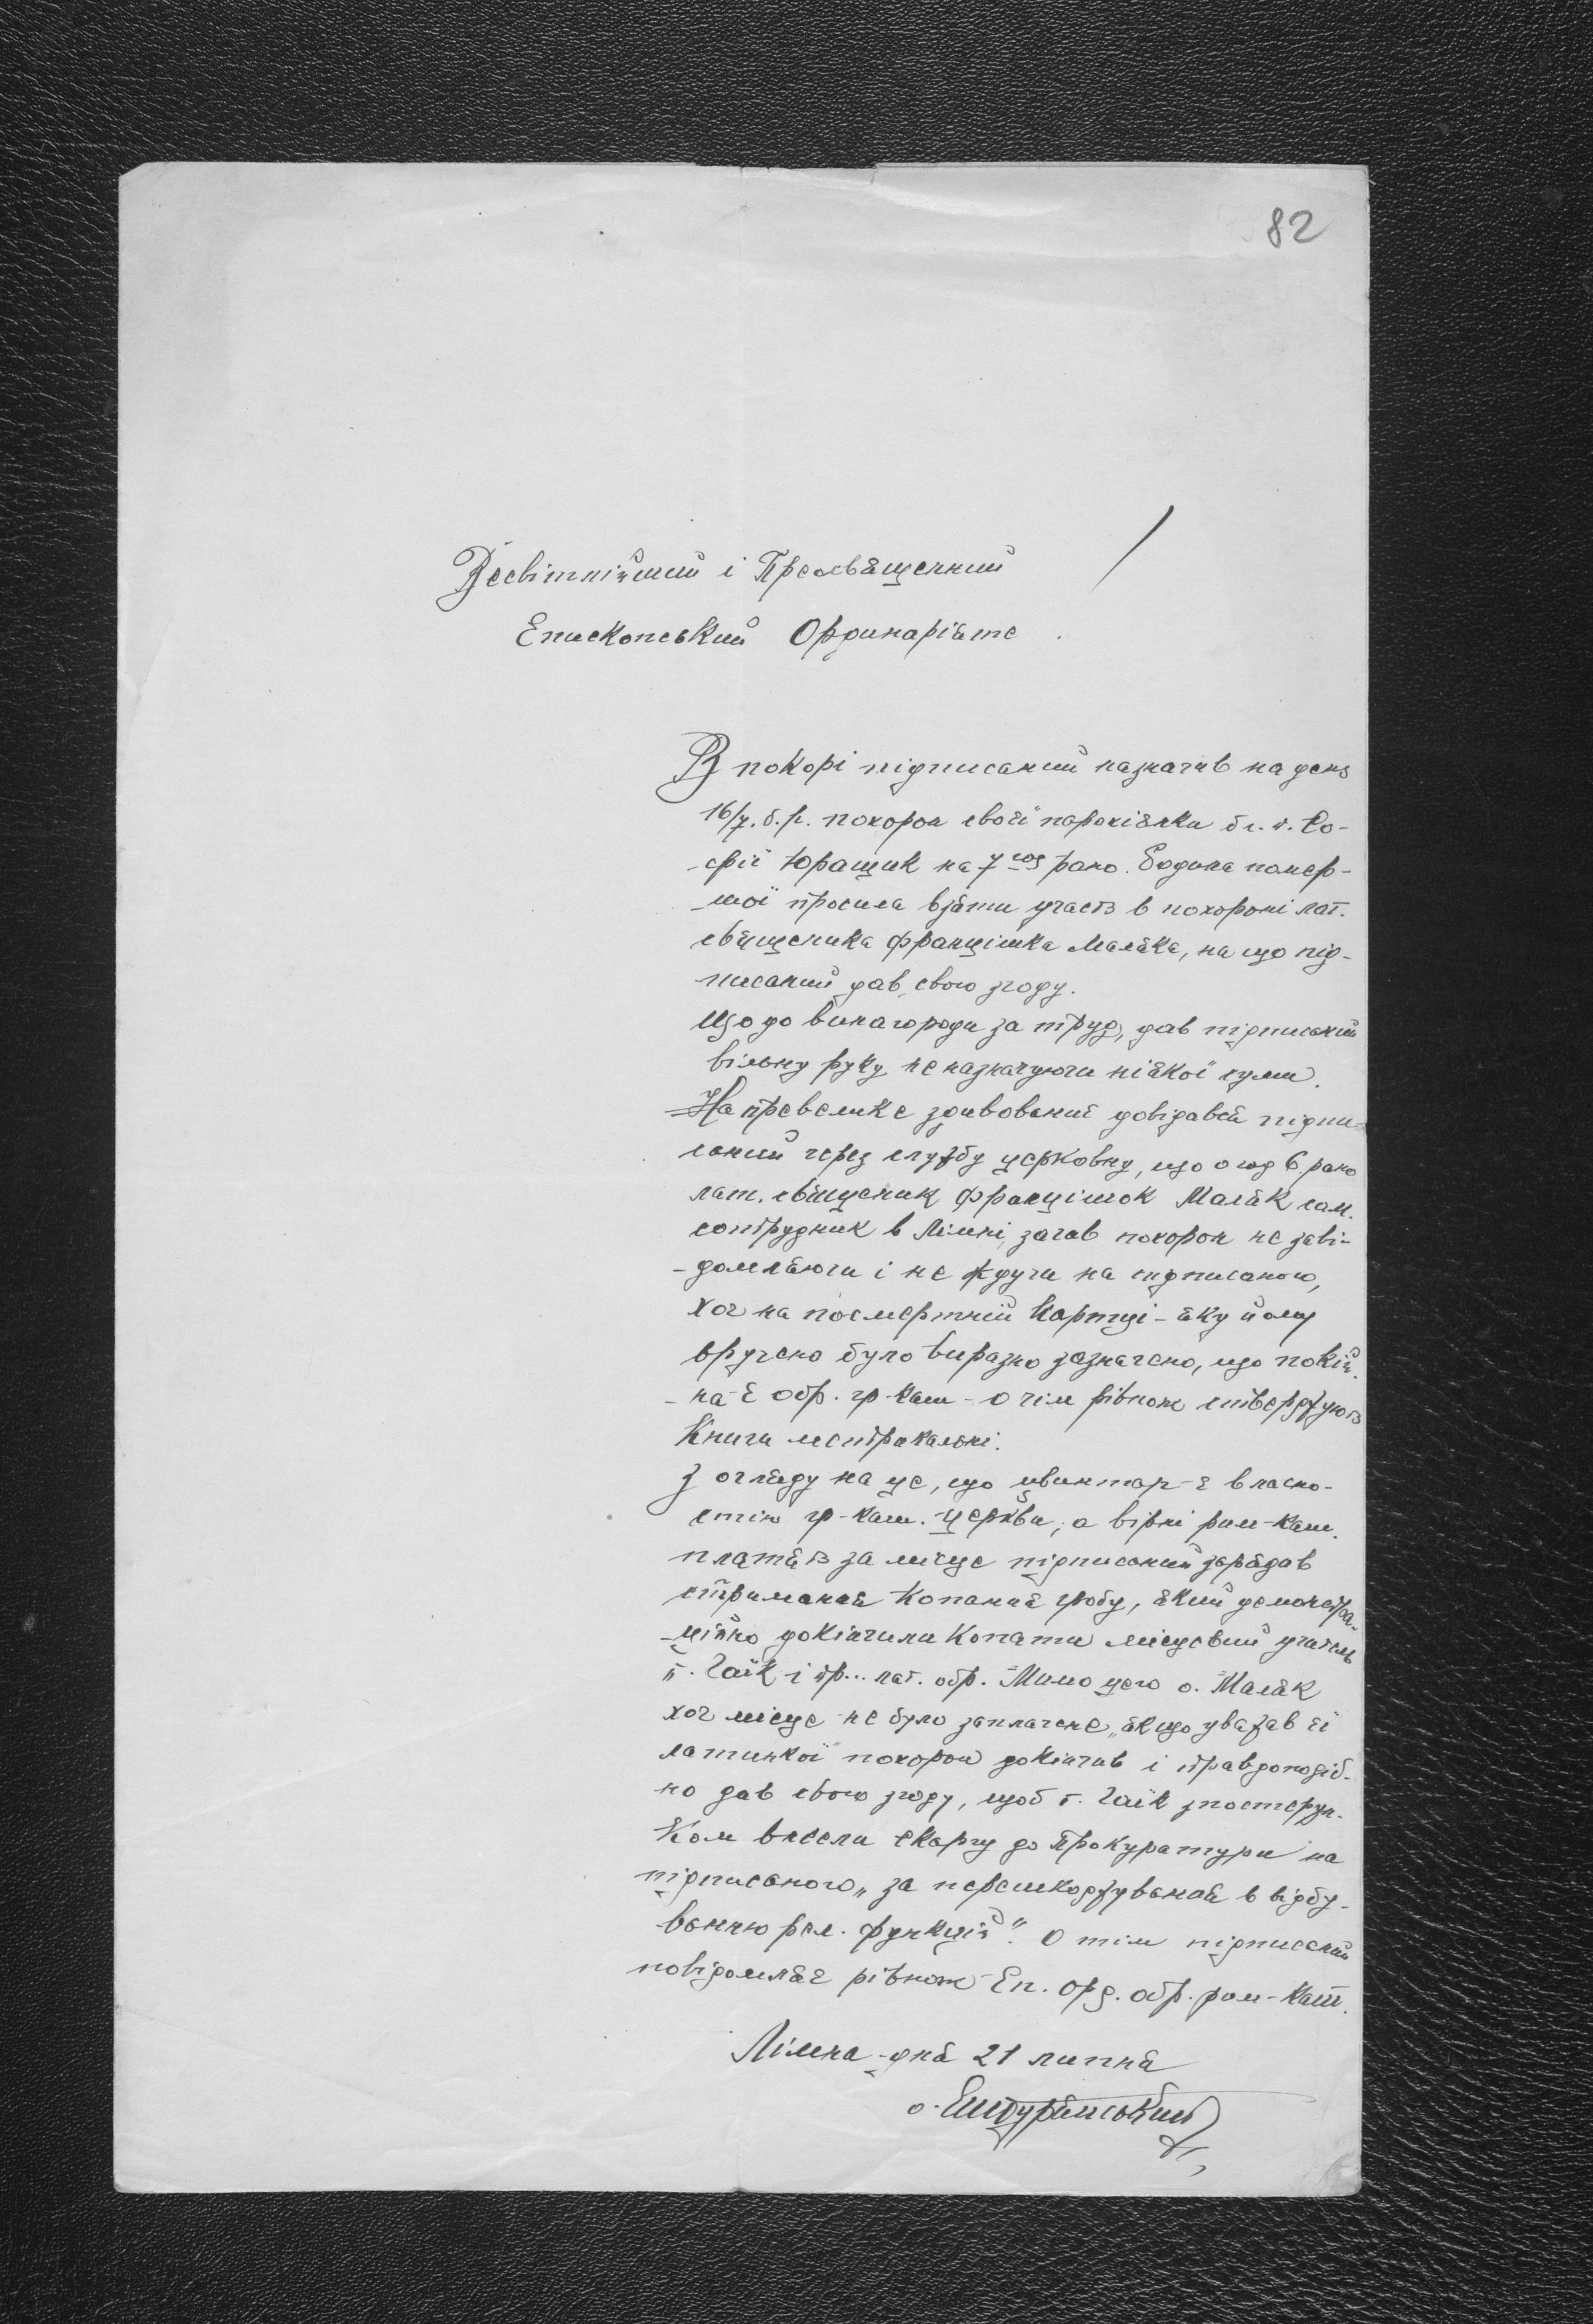 82
Всесвітлійший і Преосвященний
Епископський Ординаріяте
В покорі підписаний назначив на день
16/7. б.р. похорон своєї парохіянки бл. п. Со-
-фії Юращик на 7 год рано. Родина помер-
-шої просила взяти участь в похороні лат.
священика Францішка Маляка, на що під-
писаний дав свою згоду.
Що до винагороди за труд, дав підписаний
вільну руку не назначуючи ніякої суми.
На превелике здивованнє довідався підпи-
саний через службу церковну, що о год 6 рано
лат. священик Францішок Маляк сам.
сотрудник в Лімні, зачав похорон не заві-
-домляючи і не ждучи на підписаного,
хоч на посмертній картці - яку йому
вручено було виразно зазначено, що покій-
-на є обр. гр-кат - о чім рівнож стверджують
Книги метрикальні.
З огляду на це, що цвинтар - є власно-
стію гр-кат. церкви, а вірні рим-кат.
платять за місце підписаний зарядив
стриманнє копання гробу, який демонстра-
-ційно докінчили копати місцевий учитель
п. Гаїк і лат. обр. Мимо цего о. Маляк
хоч місце не було заплачене, якщо уважав її
латинкою похорон докінчив і правдоподіб-
но дав свою згоду, щоб п. Гаїк з постерун-
ком внесли скаргу до Прокуратури на
підписаного „за перешкоджування в відбу-
ванню рел. функцій". О тім підписаний
повідомляє рівнож Еп. Орд. обр. рим-кат.
Лімна - дня 21 липня
о.